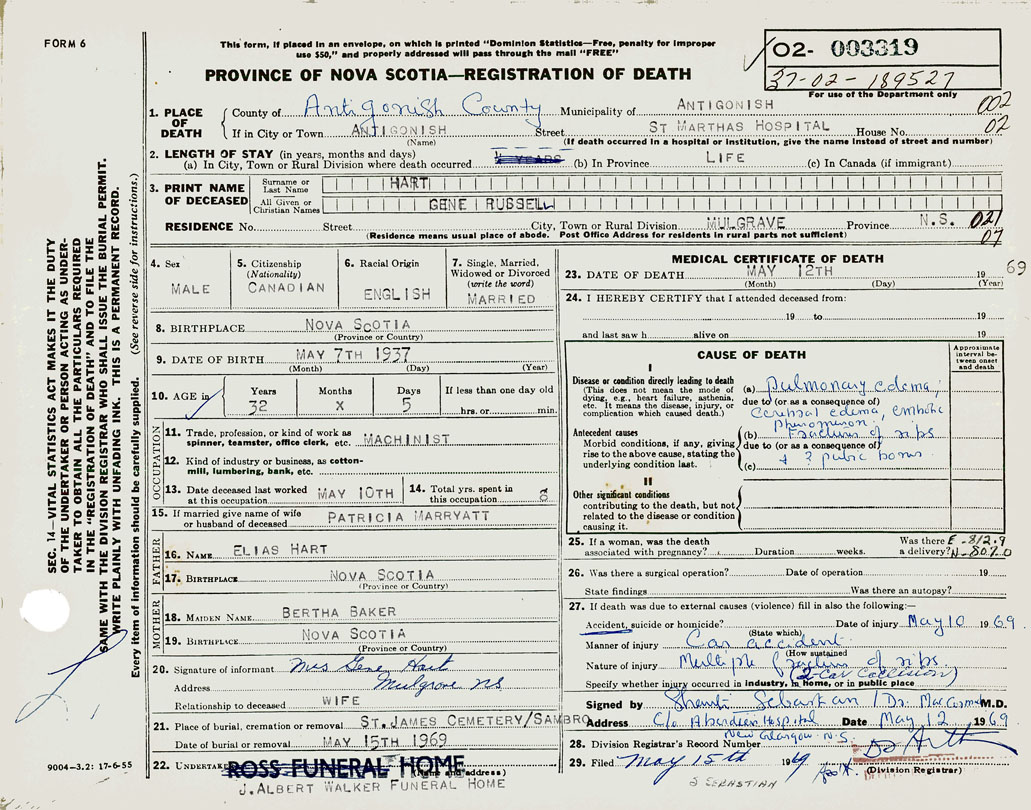 FORM 6
This form, if placed in an envelope, on which is printed "Dominion Statistics—Free, penalty for improper
use $50," and properly addressed will pass through the mail "FREE"
02- 003319
37-02-189527
For use of the Department only
PROVINCE OF NOVA SCOTIA—REGISTRATION OF DEATH
002
02
1. PLACE OF DEATH
County of Antigonish County Municipality of ANTIGONISH
If in City or Town ANTIGONISH Street ST MARTHAS HOSPITAL House No.
(Name) (If death occurred in a hospital or institution, give the name instead of street and number)
2. LENGTH OF STAY (in years, months and days)
(a) In City, Town or Rural Division where death occurred YEARS (b) In Province LIFE (c) In Canada (if immigrant)
3. PRINT NAME OF DECEASED
Surname or Last Name HART
All Given or Christian Names GENE RUSSELL
RESIDENCE No. Street City, Town or Rural Division MULGRAVE Province N.S. 021
07
(Residence means usual place of abode. Post Office Address for residents in rural parts not sufficient)
SEC. 14—VITAL STATISTICS ACT MAKES IT THE DUTY
OF THE UNDERTAKER OR PERSON ACTING AS UNDER-
TAKER TO OBTAIN ALL THE PARTICULARS REQUIRED
IN THE "REGISTRATION OF DEATH" AND TO FILE THE
SAME WITH THE DIVISION REGISTRAR WHO SHALL ISSUE THE BURIAL PERMIT.
WRITE PLAINLY WITH UNFADING INK. THIS IS A PERMANENT RECORD.
Every item of information should be carefully supplied. (See reverse side for instructions.)
4. Sex
MALE
5. Citizenship
(Nationality)
CANADIAN
6. Racial Origin
ENGLISH
7. Single, Married,
Widowed or Divorced
(write the word)
MARRIED
8. BIRTHPLACE NOVA SCOTIA
(Province or Country)
9. DATE OF BIRTH MAY 7TH 1937
(Month) (Day) (Year)
10. AGE in
Years Months Days If less than one day old
32 X 5 hrs. or min.
OCCUPATION
11. Trade, profession or kind of work as
spinner, teamster, office clerk, etc. MACHINIST
12. Kind of industry or business, as cotton-
mill, lumbering, bank, etc.
13. Date deceased last worked
at this occupation MAY 10TH
14. Total yrs. spent in
this occupation
15. If married give name of wife
or husband of deceased PATRICIA MARRYATT
FATHER
16. NAME ELIAS HART
17. BIRTHPLACE NOVA SCOTIA
(Province or Country)
MOTHER
18. MAIDEN NAME BERTHA BAKER
19. BIRTHPLACE NOVA SCOTIA
(Province or Country)
20. Signature of informant Mrs Gene Hart
Address Mulgrave NS
Relationship to deceased WIFE
21. Place of burial, cremation or removal ST. JAMES CEMETERY/SAMBRO
Date of burial or removal MAY 15TH 1969
22. UNDERTAKER ROSS FUNERAL HOME
(Name and address)
J. ALBERT WALKER FUNERAL HOME
9004-3.2: 17-6-55
MEDICAL CERTIFICATE OF DEATH
23. DATE OF DEATH MAY 12TH 19 69
(Month) (Day) (Year)
24. I HEREBY CERTIFY that I attended deceased from:
19 to 19
and last saw h alive on 19
CAUSE OF DEATH
Approximate
interval be-
tween onset
and death
I
Disease or condition directly leading to death
(This does not mean the mode of
dying, e.g., heart failure, asthenia,
etc. It means the disease, injury, or
complication which caused death.)
(a) Pulmonary edema,
due to (or as a consequence of)
Cerebral edema, embolic
phenomenon
Antecedent causes
Morbid conditions, if any, giving
rise to the above cause, stating the
underlying condition last.
(b) Fractures of ribs
due to (or as a consequence of)
+ ? pubic bones
(c)
II
Other significant conditions
contributing to the death, but not
related to the disease or condition
causing it.
25. If a woman, was the death
associated with pregnancy? Duration weeks.
Was there
a delivery?
E-812.9
N-807.0
26. Was there a surgical operation? Date of operation 19
State findings Was there an autopsy?
27. If death was due to external causes (violence) fill in also the following:—
Accident, suicide or homicide? Date of injury May 10 19 69.
(State which)
Manner of injury Car accident
(How sustained
Nature of injury Multiple fractures of ribs
(2-Car Collision)
Specify whether injury occurred in industry, in home, or in public place
Signed by Sebastian / Dr. MacCormack M.D.
Address C/o Aberdeen Hospital Date May 12 1969
New Glasgow N.S.
28. Division Registrar's Record Number
29. Filed May 15th 1969
(Division Registrar)
J SEBASTIAN